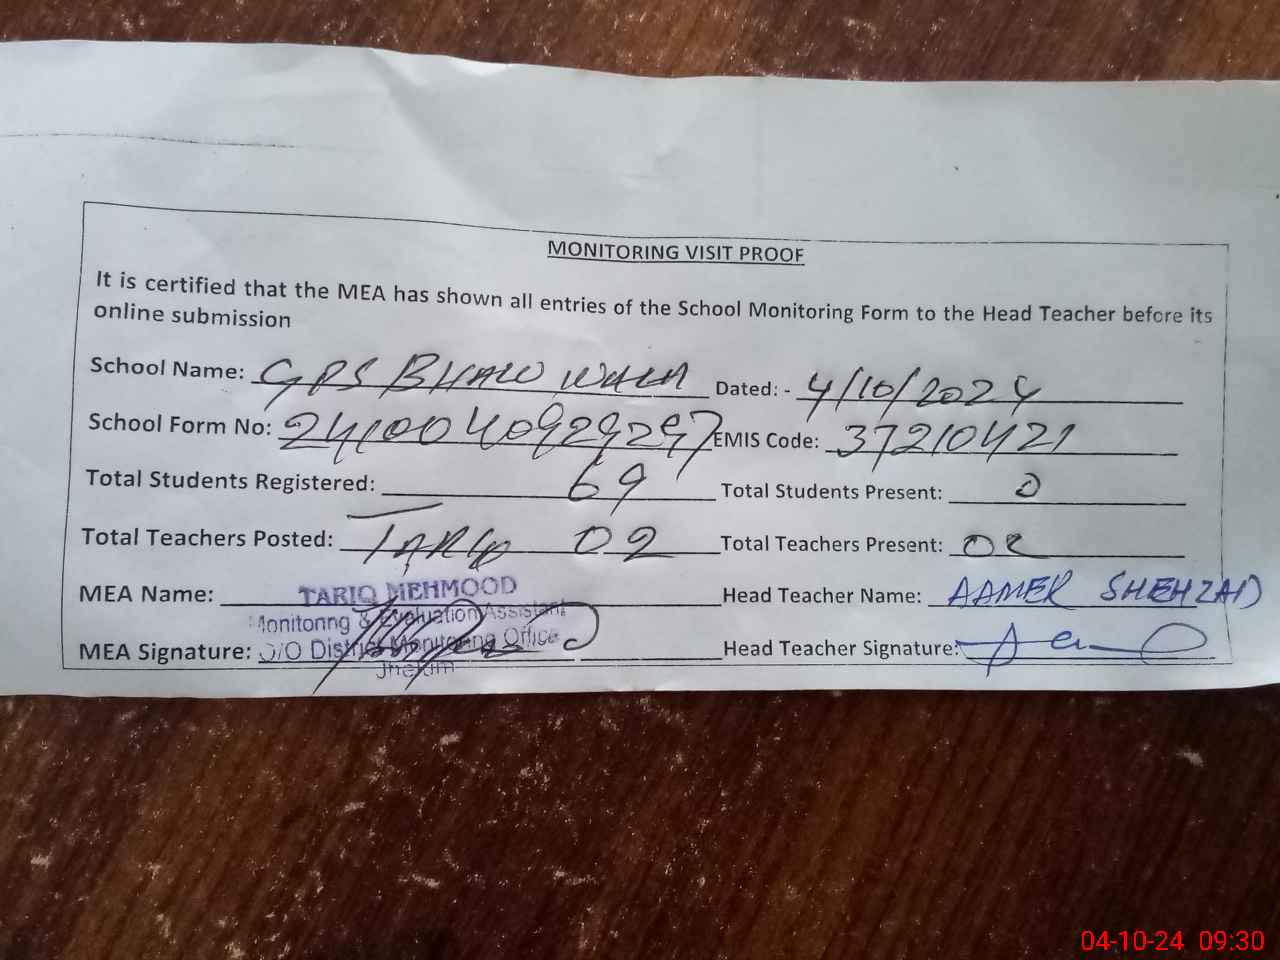 MONITORING VISIT PROOF
It is certified that the MEA has shown all entries of the School Monitoring Form to the Head Teacher before its
online submission
School Name: GPS BHALO WALA Dated: - 4/10/2024
School Form No: 2410040929297 EMIS Code: 37210421
Total Students Registered: 69 Total Students Present: 0
Total Teachers Posted: 02 Total Teachers Present: 02
MEA Name: TARIQ MEHMOOD Head Teacher Name: AAMER SHEHZAD
Monitoring & Evaluation Assistant
MEA Signature: O/O District Monitoring Office Head Teacher Signature:
Jhelum
04-10-24 09:30